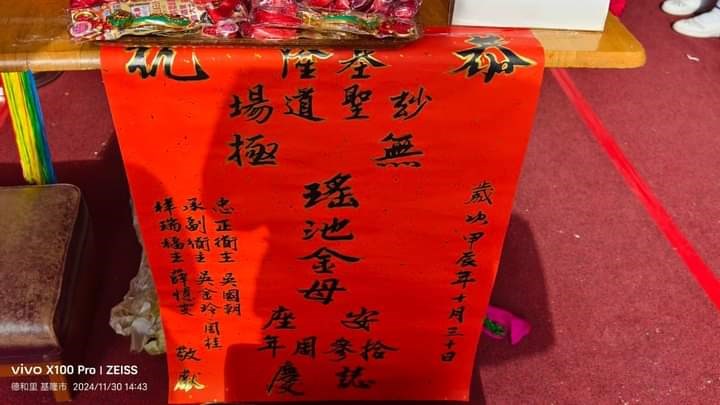 恭祝
基隆
玅聖道場
無極
瑤池金母
安座
拾參周年
誌慶
歲次甲辰年十月三十日
忠正衛主 吳國朝
承副衛主 吳金玲 周桂
祥瑞主 薛
敬獻
vivo X100 Pro | ZEISS
德和里 基隆市 2024/11/30 14:43